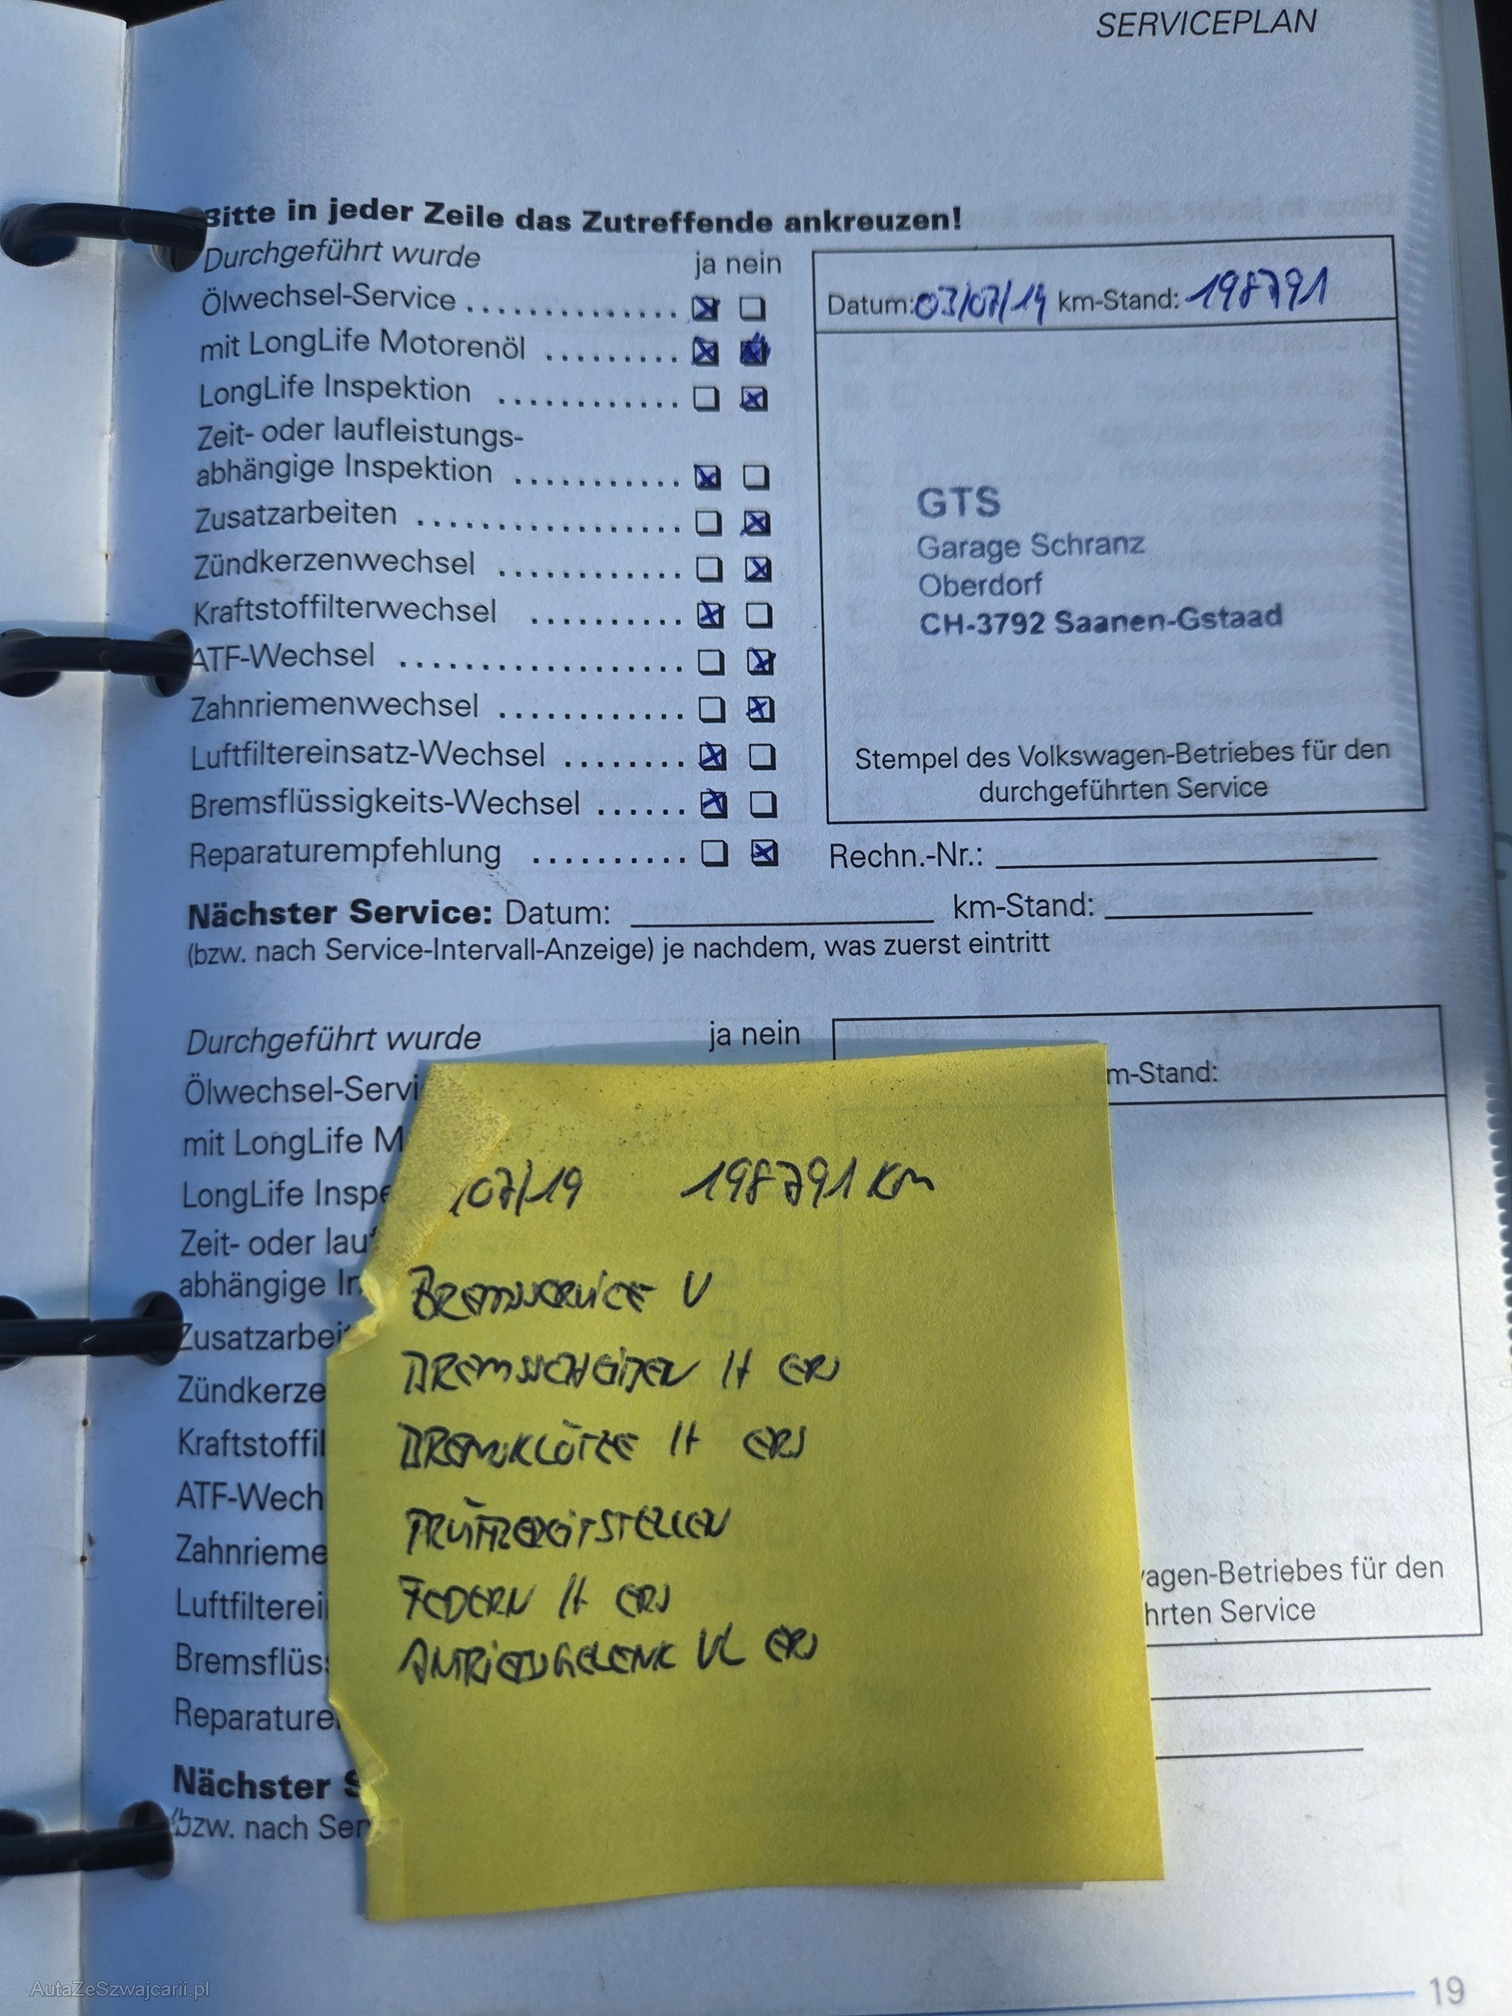 SERVICEPLAN
Bitte in jeder Zeile das Zutreffende ankreuzen!
Durchgeführt wurde ja nein
Ölwechsel-Service
mit LongLife Motorenöl
LongLife Inspektion
Zeit- oder laufleistungs-
abhängige Inspektion
Zusatzarbeiten
Zündkerzenwechsel
Kraftstoffilterwechsel
ATF-Wechsel
Zahnriemenwechsel
Luftfiltereinsatz-Wechsel
Bremsflüssigkeits-Wechsel
Reparaturempfehlung
Datum: 03/07/19 km-Stand: 198791
GTS
Garage Schranz
Oberdorf
CH-3792 Saanen-Gstaad
Stempel des Volkswagen-Betriebes für den
durchgeführten Service
Rechn.-Nr.:
Nächster Service: Datum: km-Stand:
(bzw. nach Service-Intervall-Anzeige) je nachdem, was zuerst eintritt
Durchgeführt wurde ja nein
Ölwechsel-Servi
mit LongLife M
LongLife Inspe
Zeit- oder lau
abhängige In
Zusatzarbei
Zündkerze
Kraftstoffil
ATF-Wech
Zahnrieme
Luftfilterei
Bremsflüs
Reparature
m-Stand:
agen-Betriebes für den
hrten Service
Nächster S
(bzw. nach Ser
/07/19 198791 Km
BREMSSERVICE V
BREMSSCHEIBEN H ERS
BREMSKLÖTZE H ERS
PRÜFBEREITSTELLEN
FEDERN H ERS
ANTRIEBSGELENK VL ERS
19
AutaZeSzwajcarii.pl